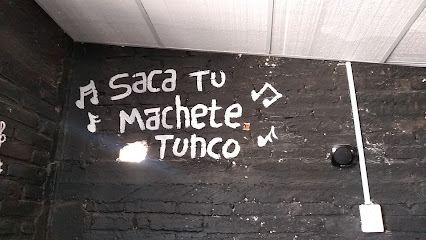 Saca Tu
Machete
Tunco